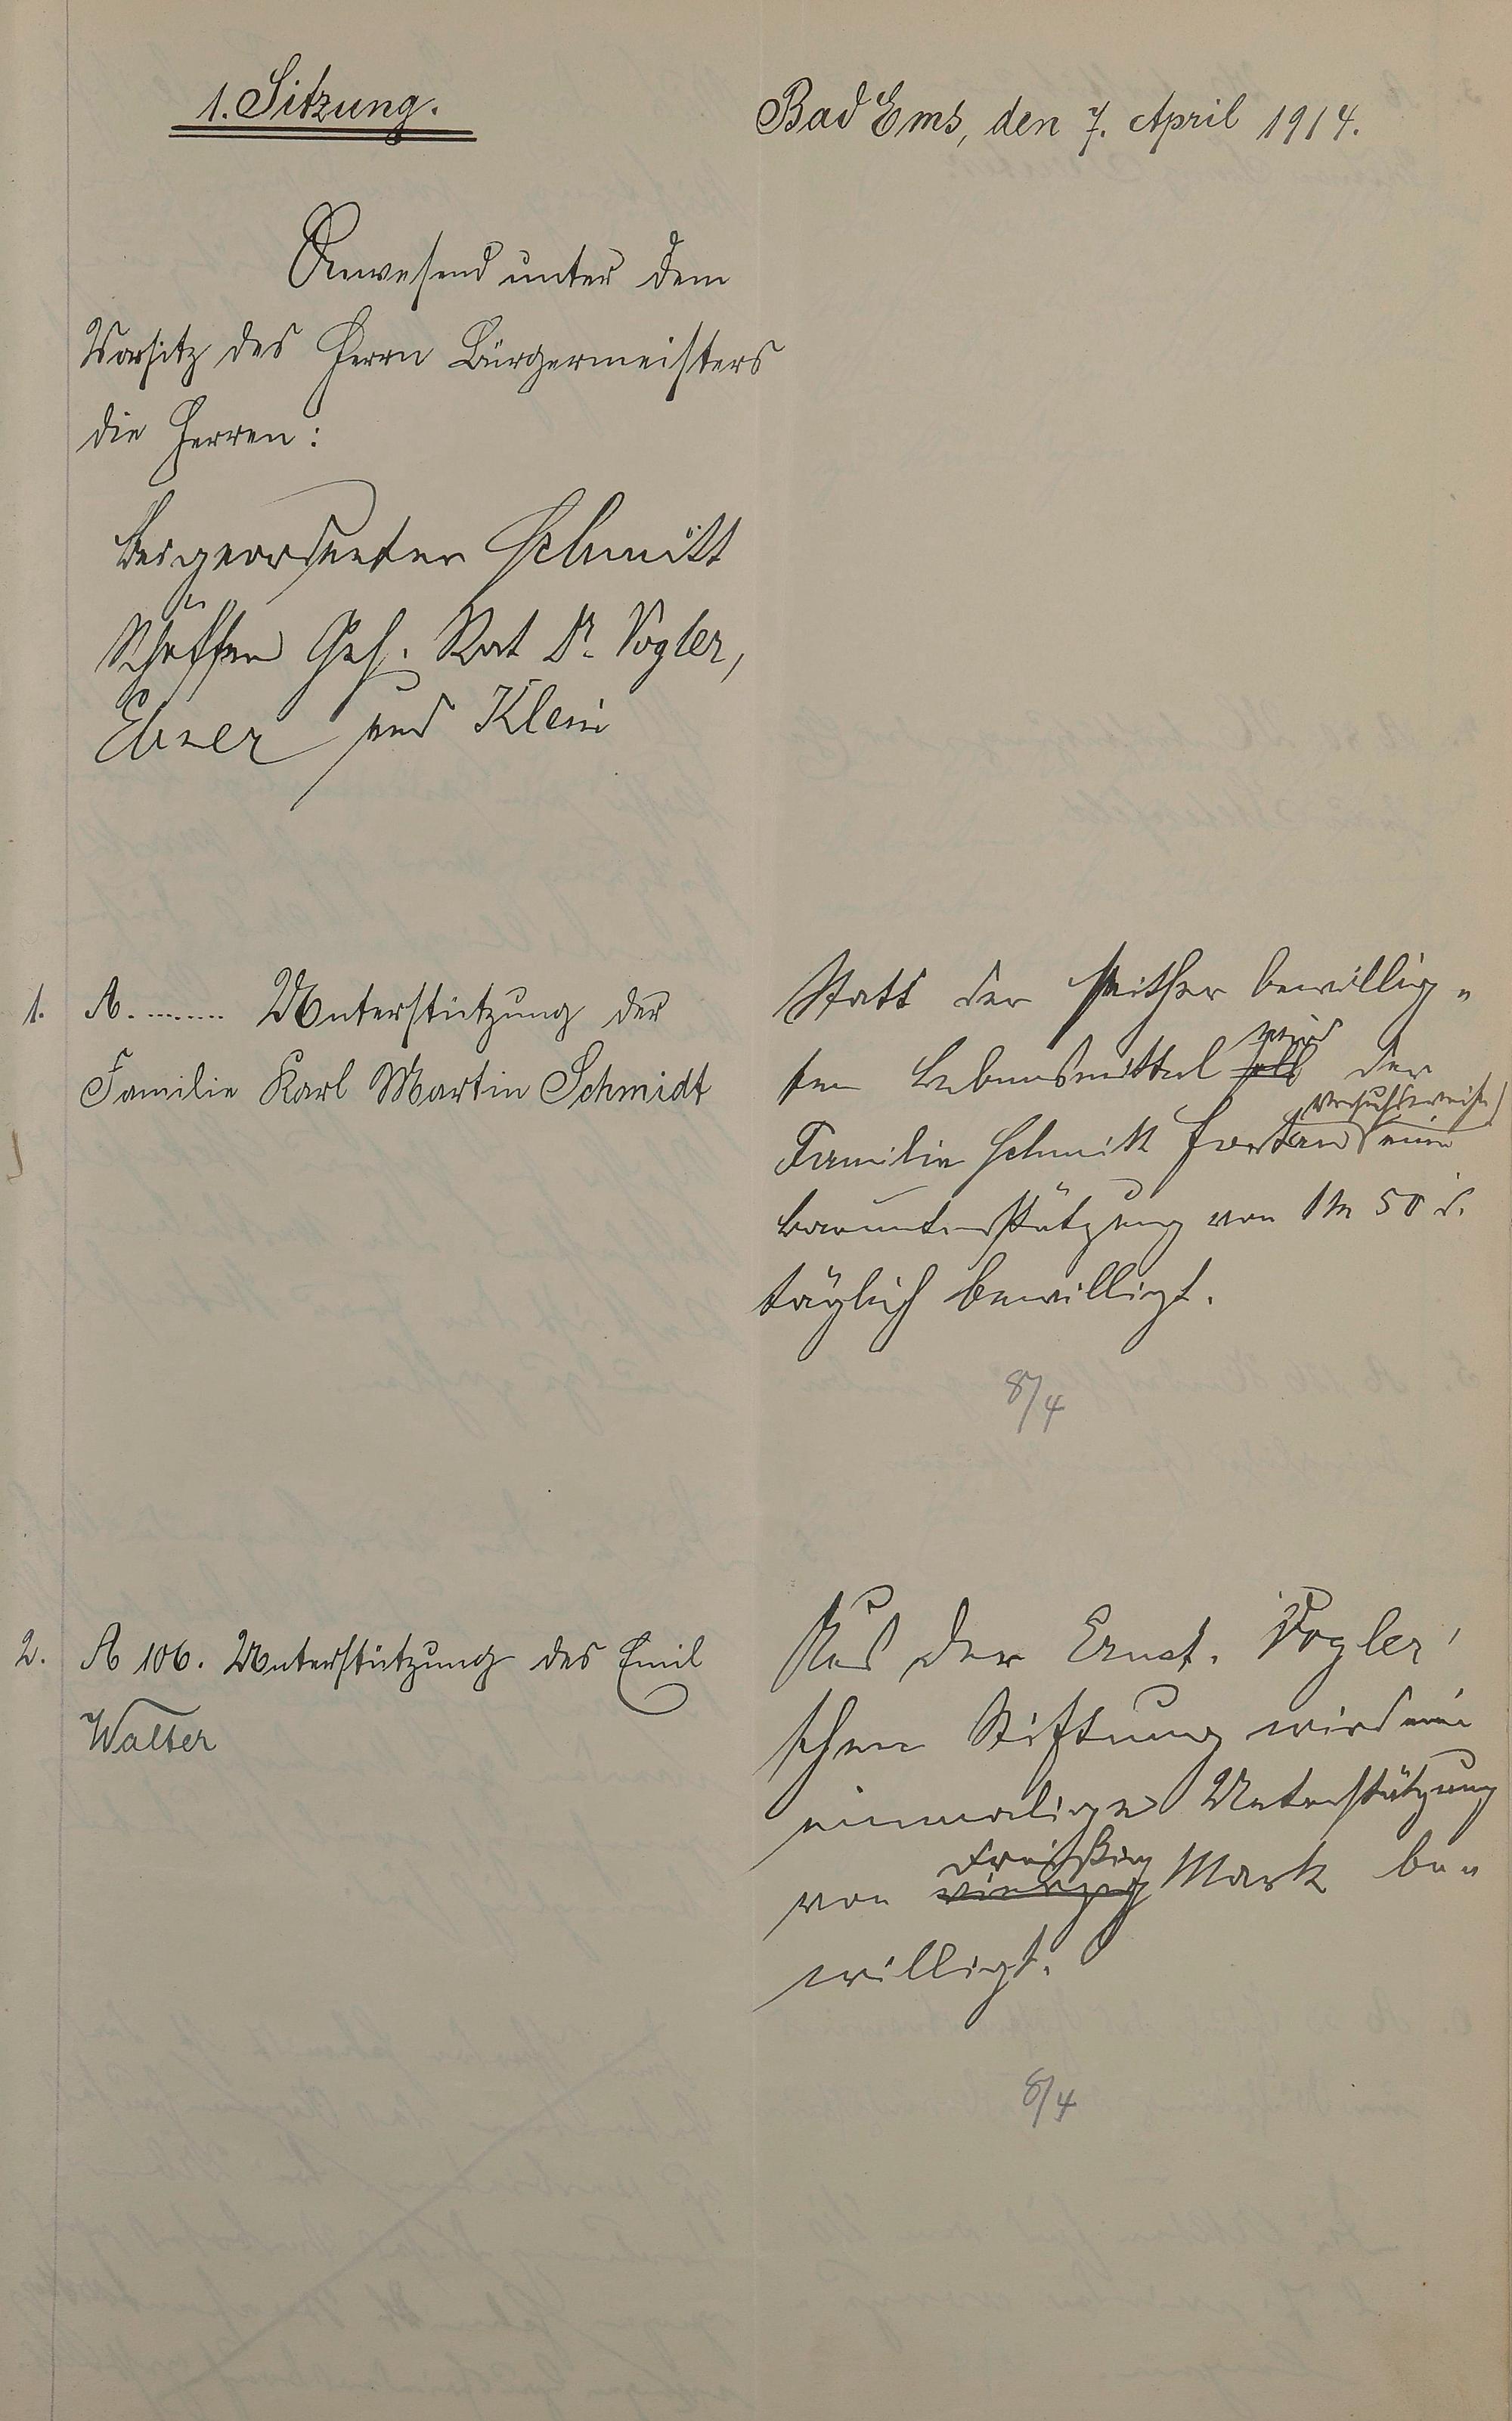 1. Sitzung.
Bad Ems, den 7. April 1914.
Anwesend unter dem
Vorsitz des Herrn Bürgermeisters
die Herren:
Beigeordneter Schmitt
Schöffen Geh. Rat Dr. Vogler,
Ebner und Klein
1. A. ........ Unterstützung der
Familie Karl Martin Schmidt
Statt der seither bewillig-
wird
ten Lebensmittel soll der
versuchsweise
Familie Schmitt fortan eine
Barunterstützung von 1 M 50 d.
täglich bewilligt.
8/4
2. A 106. Unterstützung des Emil
Walter
Aus der Ernst. Vogler'
schen Stiftung wird eine
einmalige Unterstützung
dreißig
von vierzig Mark be-
willigt.
8/4